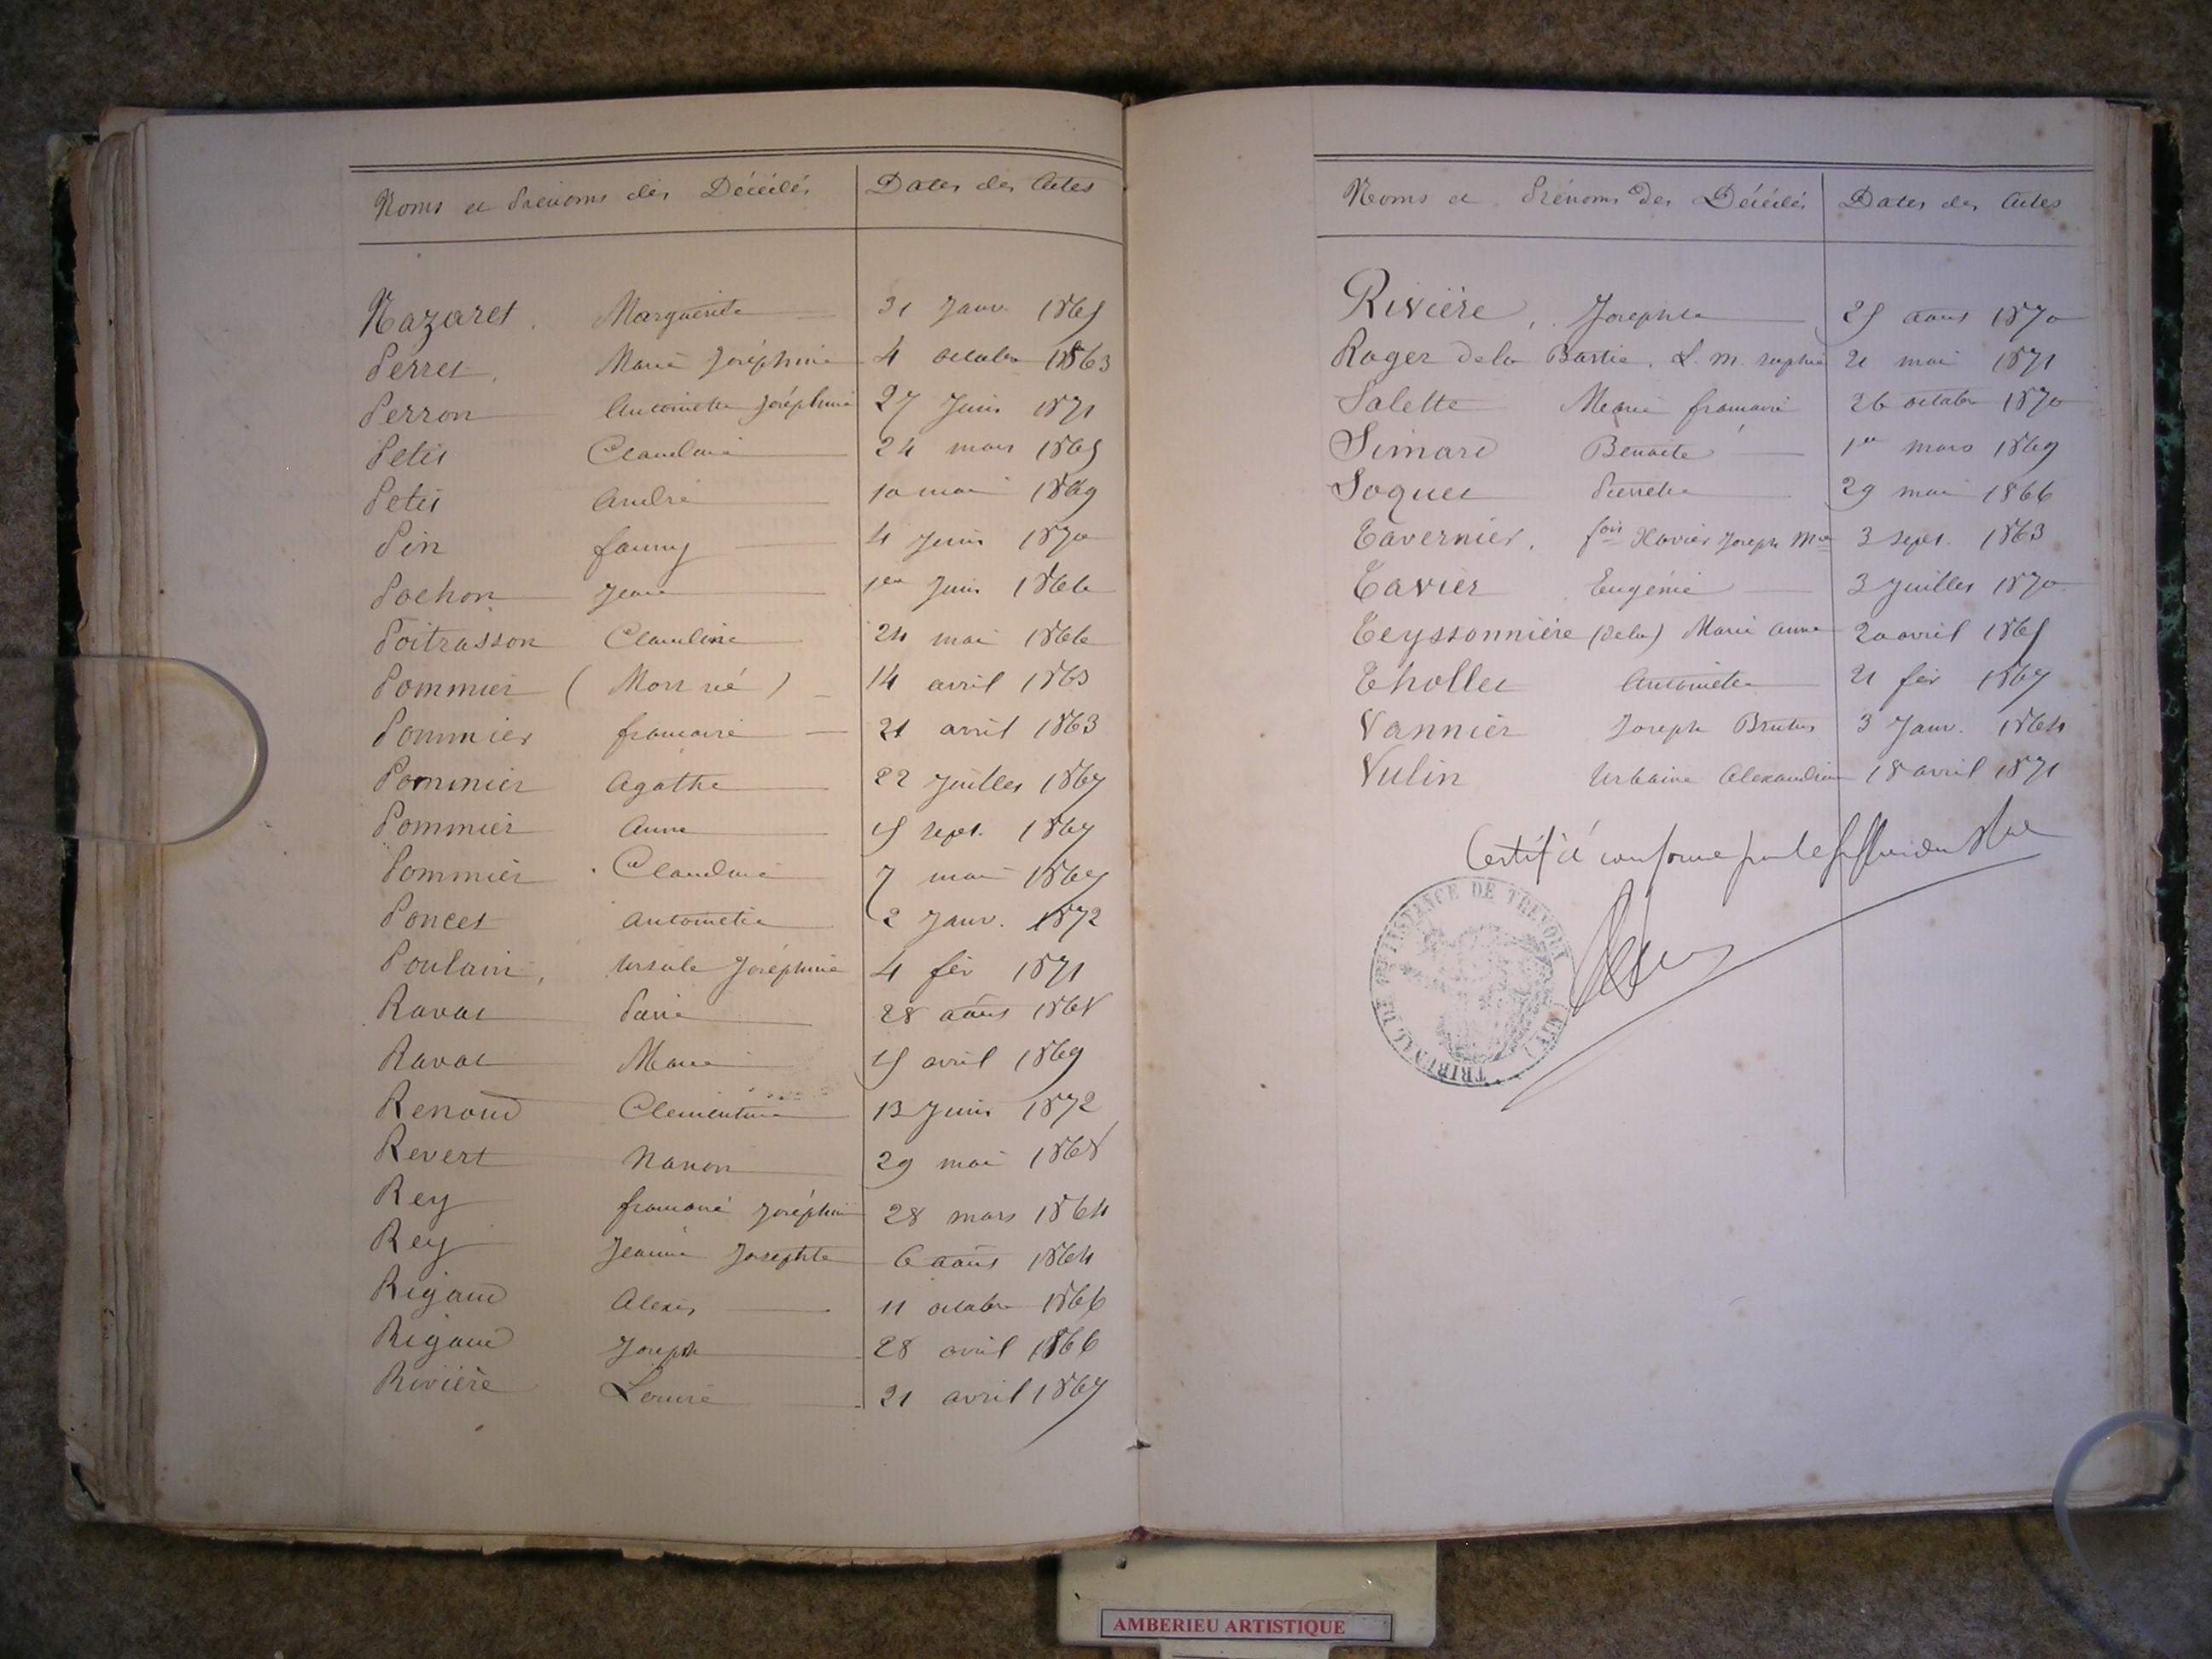 Noms et Prénoms des Décédés Dates des Actes
Nazaret. Marguerite 31 Janv. 1865
Perret. Marie Joséphine 4 octobre 1863
Perron Antoinette Joséphine 27 Juin 1871
Petit Claudine 24 mars 1865
Petit André 10 mai 1869
Pin fanny 4 Juin 1870
Pochon Jean 1er Juin 1866
Poitrasson Claudine 24 mai 1866
Pommier (Mort né) 14 avril 1863
Pommier francoise 21 avril 1863
Pommier Agathe 22 Juillet 1867
Pommier Anne 15 sept. 1867
Pommier Claudine 7 mai 1867
Poncet Antoinette 2 Janv. 1872
Poulain, Ursule Joséphine 4 fév 1871
Ravat 28 août 1868
Ravat Marie 15 avril 1869
Renoud Clementine 13 Juin 1872
Revert Nanon 29 mai 1868
Rey francoise Joséphine 28 mars 1864
Rey Jeanne Josephte 6 août 1864
Rigaud Alexis 11 octobre 1866
Rigaud Joseph 28 avril 1866
Rivière Louise 21 avril 1867
Noms et Prénoms Des Décédés Dates des Actes
Rivière, Josephte 25 août 1870
Roger de la Bastie. L. M. sophie 21 mai 1871
Salette Marie francoise 26 octobre 1870
Simard Benoite 1er mars 1869
Soquet Pierrette 29 mai 1866
Tavernier. fois Xavier Joseph Mie 3 sept. 1863
Tavier Eugénie 3 Juillet 1870
Teyssonnière (de la) Marie Anne 20 avril 1865
Thollet Antoinette 21 fév 1867
Vannier Joseph Brutus 3 Janv. 1864
Vulin Urbaine Alexandrine 18 avril 1871
Certifié conforme par le Greffier
TRIBUNAL DE 1ère INSTANCE DE TREVOUX (AIN)
AMBERIEU ARTISTIQUE